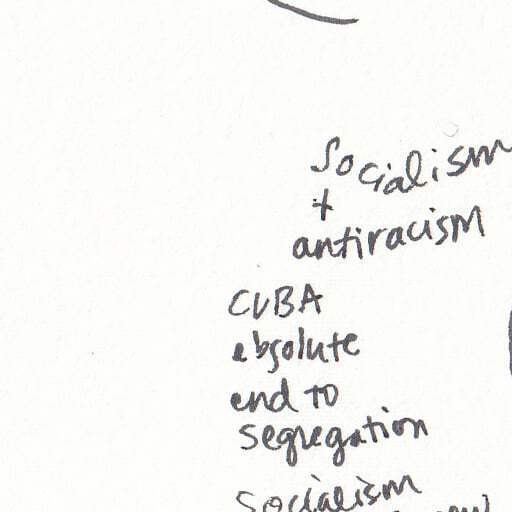 Socialism
+
antiracism
CUBA
absolute
end to
segregation
Socialism